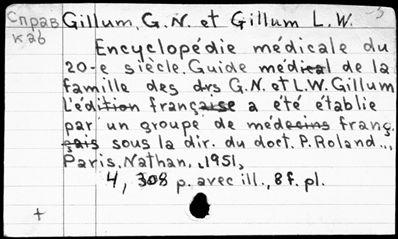 Справ Gillum, G.N. et Gillum L.W. 5
каб
Encyclopédie médicale du
20-e siècle. Guide médical de la
famille des drs G.N. et L.W. Gillum
L'édition française a été établie
par un groupe de médecins franç.
çais sous la dir. du doct. P. Roland..,
Paris, Nathan, 1951,
4, 308 p. avec ill., 8 f. pl.
+